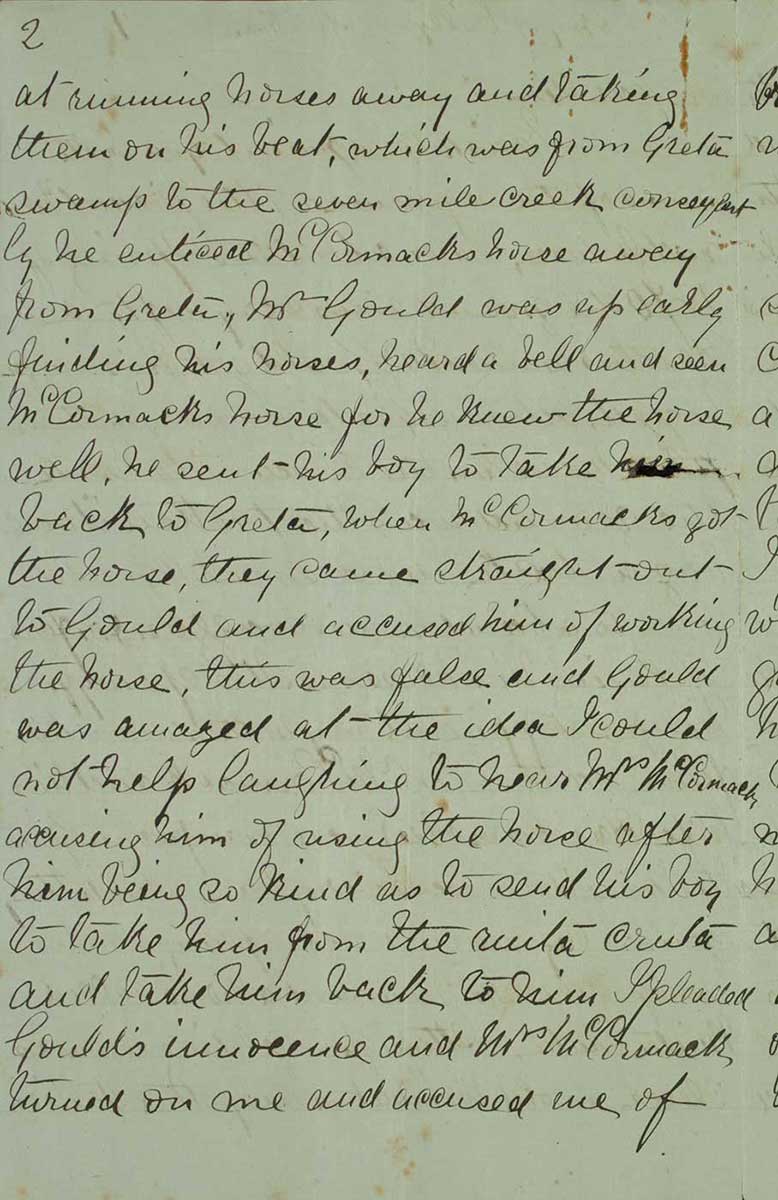 2
at running horses away and taking
them on his beat, which was from Greta
swamp to the seven mile creek consequent
ly he enticed McCormacks horse away
from Greta, Mr Gould was up early
finding his horses, heard a bell and seen
McCormacks horse for he knew the horse
well, he sent his boy to take him
back to Greta, when McCormacks got
the horse, they came straight out
to Gould and accused him of working
the horse, this was false and Gould
was amazed at the idea I could
not help laughing to hear Mrs McCormack
accusing him of using the horse after
him being so kind as to send his boy
to take him from the ruta cruta
and take him back to him I pleaded
Gould's innocence and Mrs McCormack
turned on me and accused me of